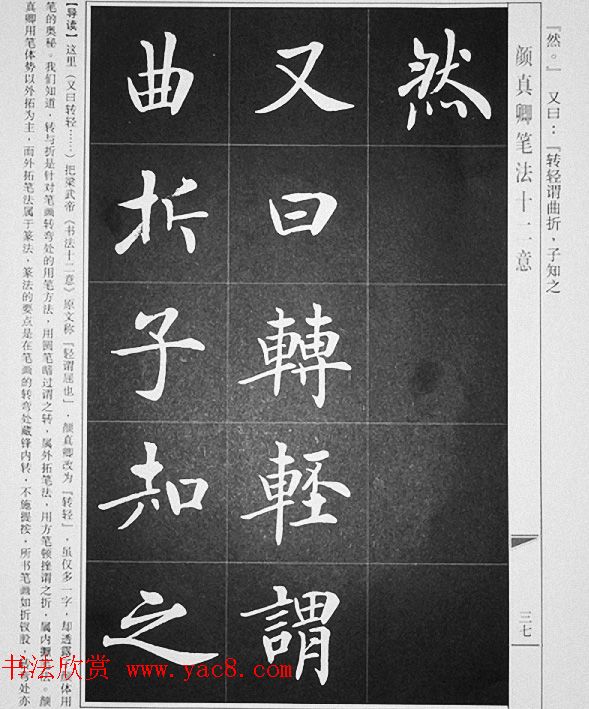 『然。』 又曰：『转轻谓曲折，子知之
颜真卿笔法十二意
三七
然
又曰轉輕謂
曲折子知之
【导读】这里（又曰转轻……）把梁武帝《书法十二意》原文称『轻谓屈也』，颜真卿改为『转轻』，虽仅多一字，却透露
体用
笔的奥秘。我们知道，转与折是针对笔画转弯处的用笔方法，用圆笔暗过谓之转，属外拓笔法，用方笔顿挫谓之折，属内
法。颜
真卿用笔体势以外拓为主，而外拓笔法属于篆法，篆法的要点是在笔画的转弯处藏锋内转，不施提按，所书笔画如折钗股，
弯处亦
书法欣赏 www.yac8.com